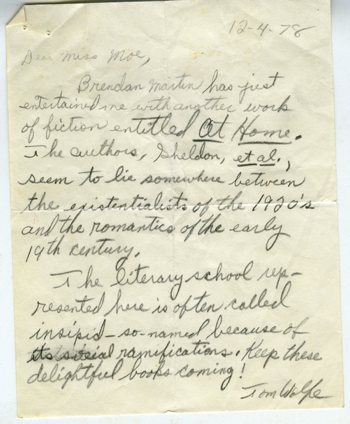 12-4-78
Dear Miss Moe,
Brendan Martin has just
entertained me with another work
of fiction entitled At Home.
The authors, Sheldon, et al.,
seem to lie somewhere between
the existentialists of the 1920's
and the romantics of the early
19th century.
The literary school rep-
resented here is often called
insipid - so-named because of
its social ramifications. Keep these
delightful books coming!
Tom Wolfe